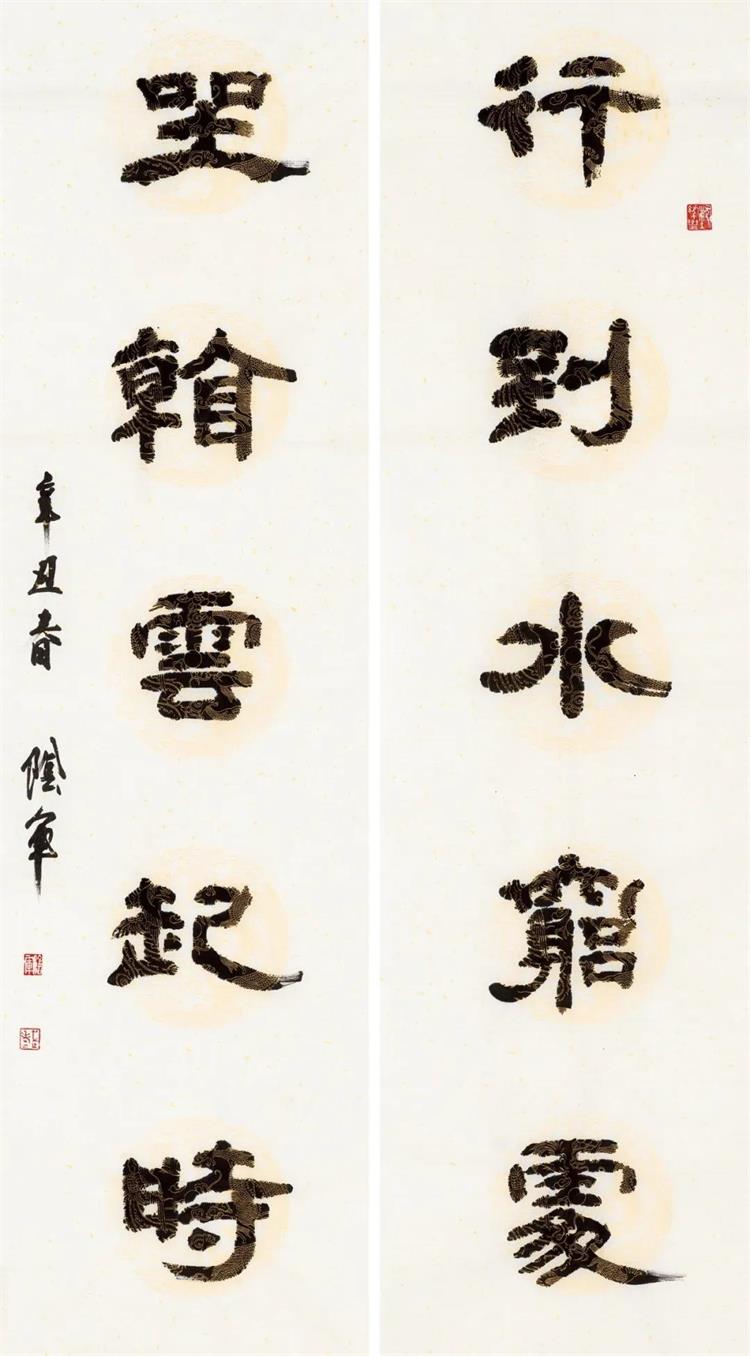 行到水窮處
坐看雲起時
辛丑春 陶軍